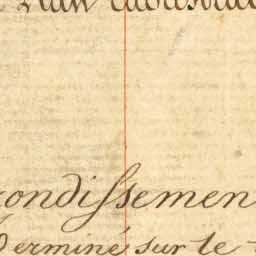 Plan cadastral
rondissement
Terminé sur le